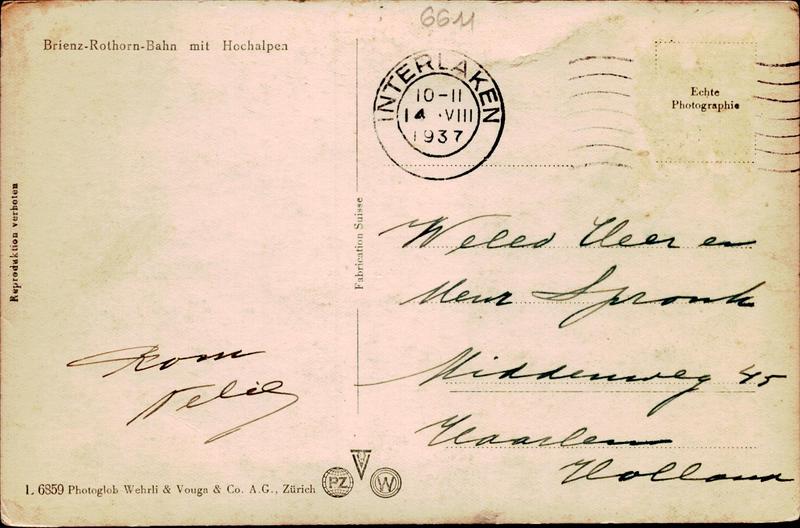 6611
Brienz-Rothorn-Bahn mit Hochalpen
INTERLAKEN
10-11
14.VIII
1937
Echte
Photographie
Reproduktion verboten
Fabrication Suisse
Heer en
Mevr Spronk
Middenweg 45
Haarlem
Holland
L 6859 Photoglob Wehrli & Vouga & Co. A.G., Zürich
PZ
W